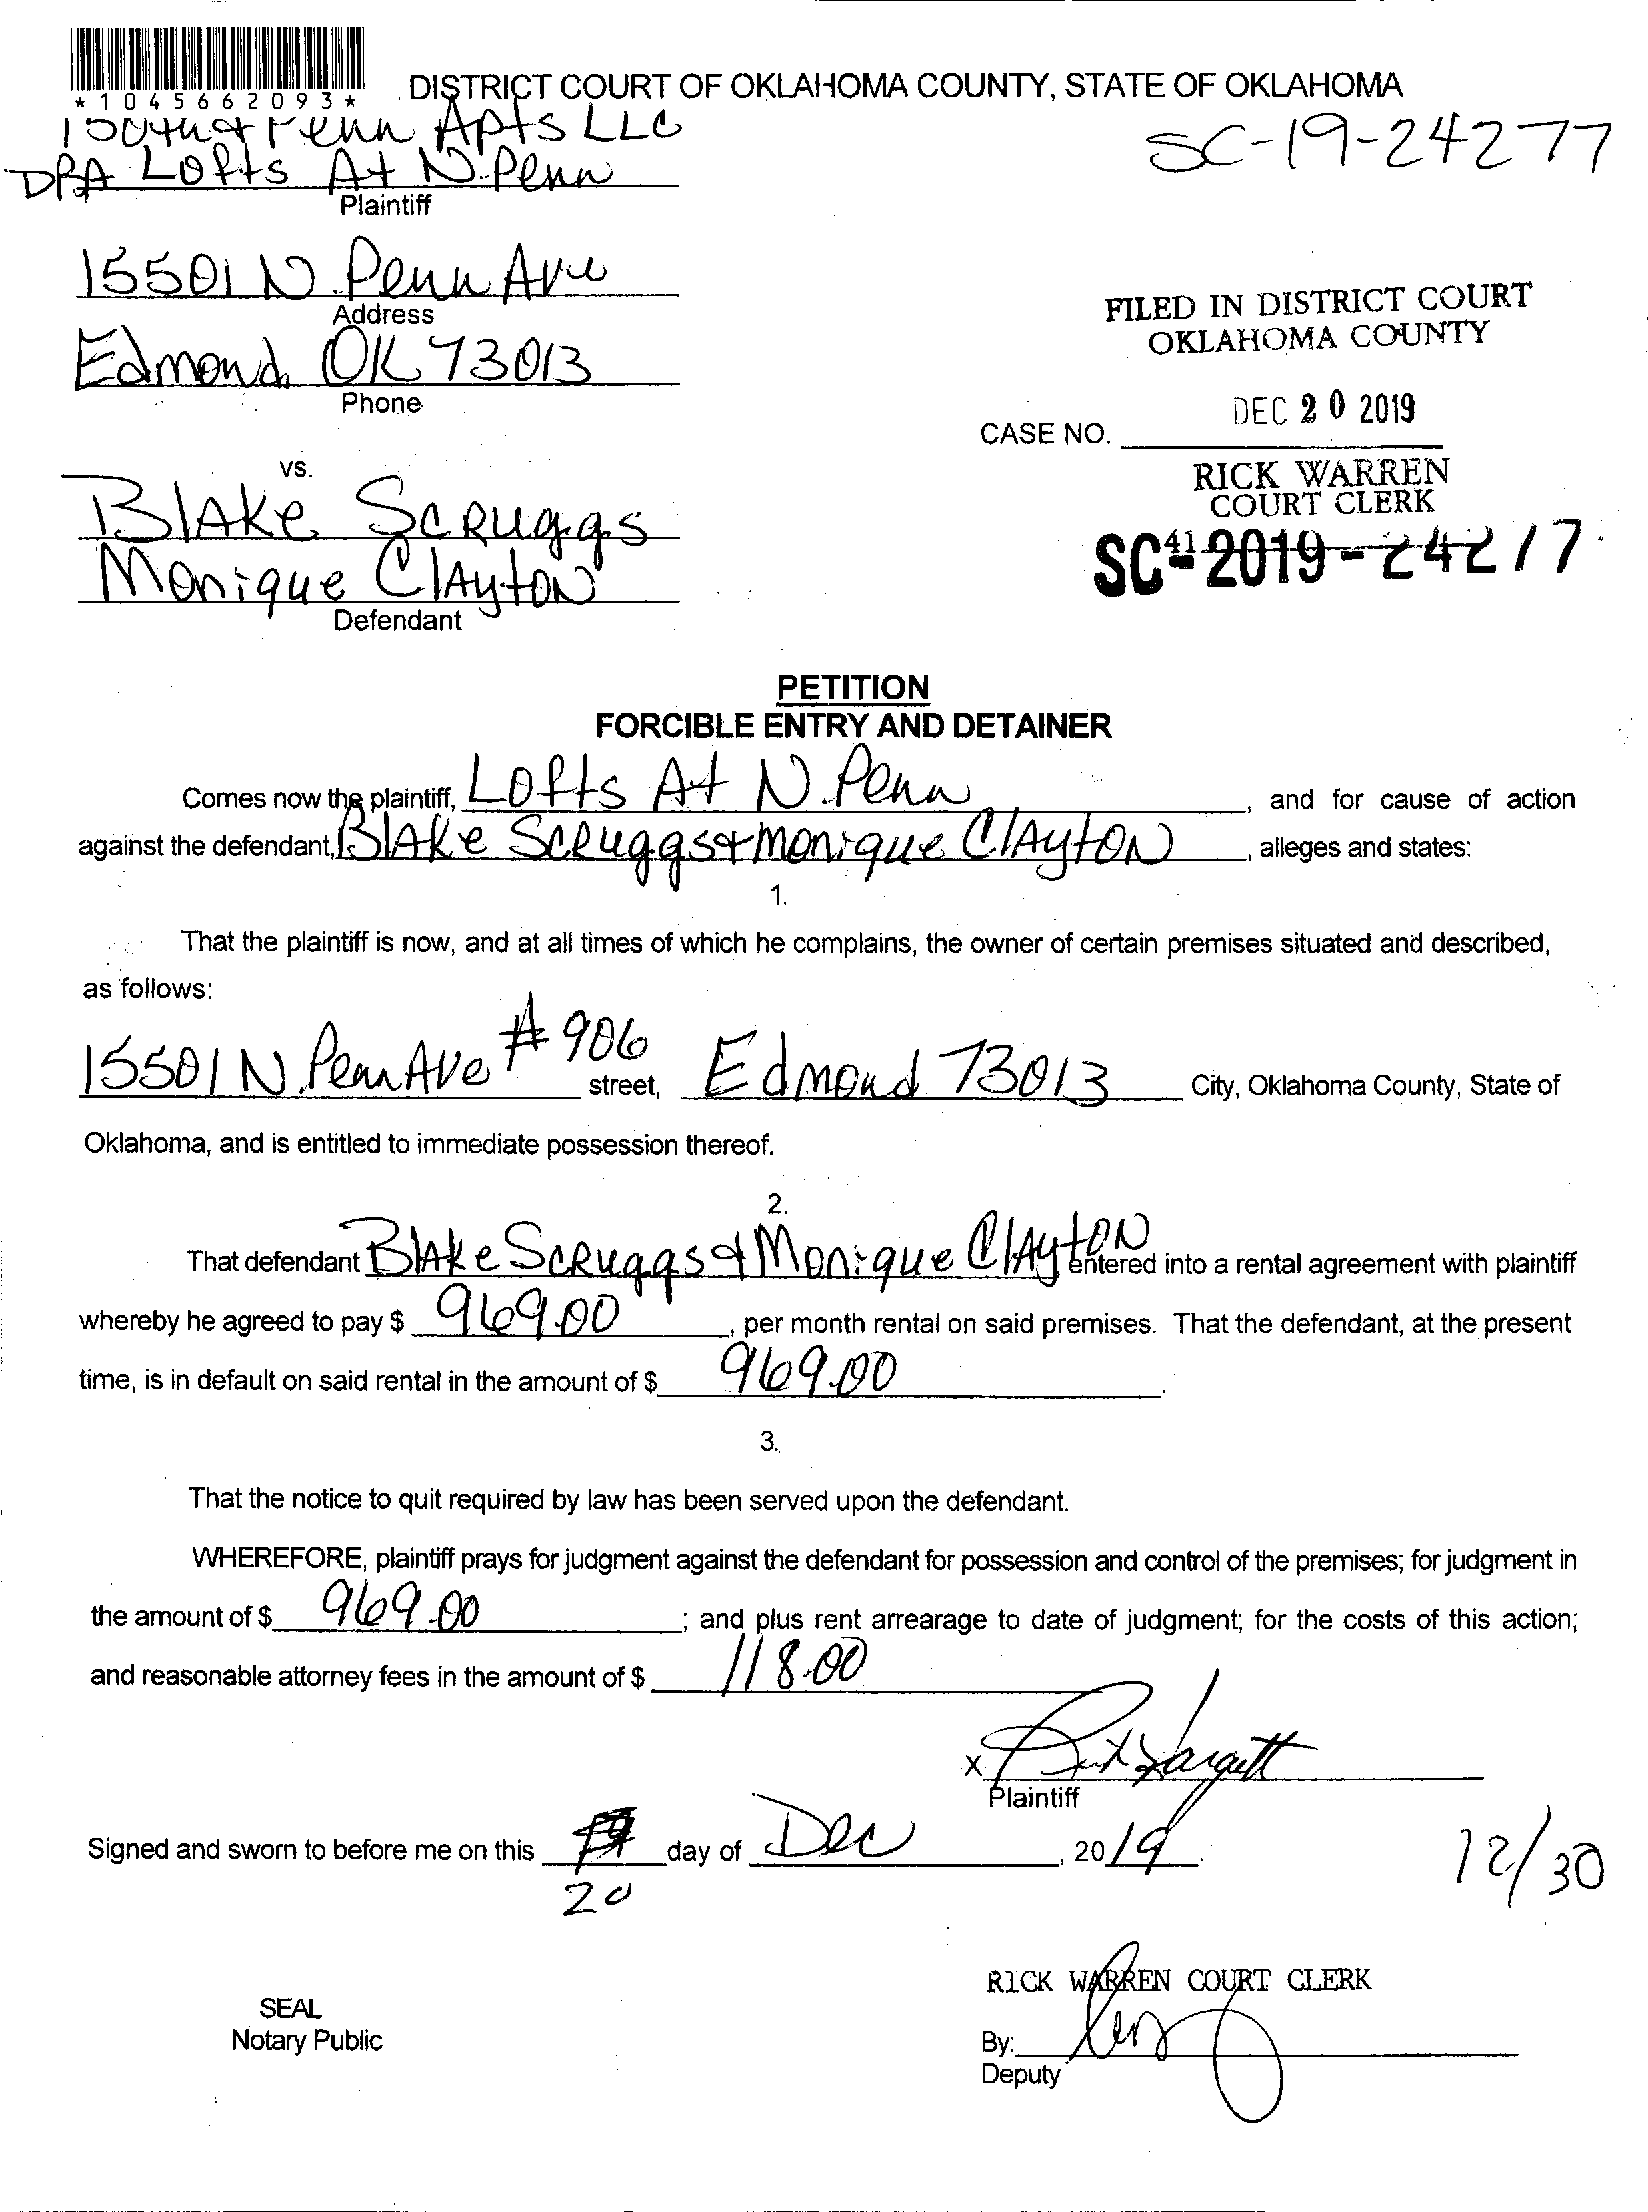 *1045662093*
DISTRICT COURT OF OKLAHOMA COUNTY, STATE OF OKLAHOMA
150th & Penn Apts LLC
SC-19-24277
DBA Lofts At N. Penn
Plaintiff
15501 N. Penn Ave
Address
FILED IN DISTRICT COURT
OKLAHOMA COUNTY
Edmond OK 73013
Phone
DEC 20 2019
CASE NO.
vs.
RICK WARREN
COURT CLERK
Blake Scruggs
41
SC-2019-24277
Monique Clayton
Defendant
PETITION
FORCIBLE ENTRY AND DETAINER
Comes now the plaintiff, Lofts At N. Penn, and for cause of action
against the defendant, Blake Scruggs & Monique Clayton, alleges and states:
1.
That the plaintiff is now, and at all times of which he complains, the owner of certain premises situated and described,
as follows:
15501 N. Penn Ave #906 street, Edmond 73013 City, Oklahoma County, State of
Oklahoma, and is entitled to immediate possession thereof.
2.
That defendant Blake Scruggs & Monique Clayton entered into a rental agreement with plaintiff
whereby he agreed to pay $ 969.00, per month rental on said premises. That the defendant, at the present
time, is in default on said rental in the amount of $ 969.00.
3.
That the notice to quit required by law has been served upon the defendant.
WHEREFORE, plaintiff prays for judgment against the defendant for possession and control of the premises; for judgment in
the amount of $ 969.00; and plus rent arrearage to date of judgment; for the costs of this action;
and reasonable attorney fees in the amount of $ 118.00
x
Plaintiff
Signed and sworn to before me on this day of Dec, 2019.
20
12/30
RICK WARREN COURT CLERK
SEAL
Notary Public
By:
Deputy